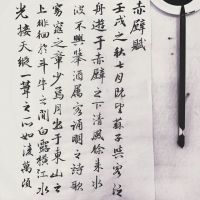 赤壁賦
壬戌之秋七月既望蘇子與客泛
舟遊于赤壁之下清風徐來水
波不興舉酒屬客誦明月之詩歌
窈窕之章少焉月出于東山之
上徘徊於斗牛之間白露橫江水
光接天縱一葦之所如凌萬頃